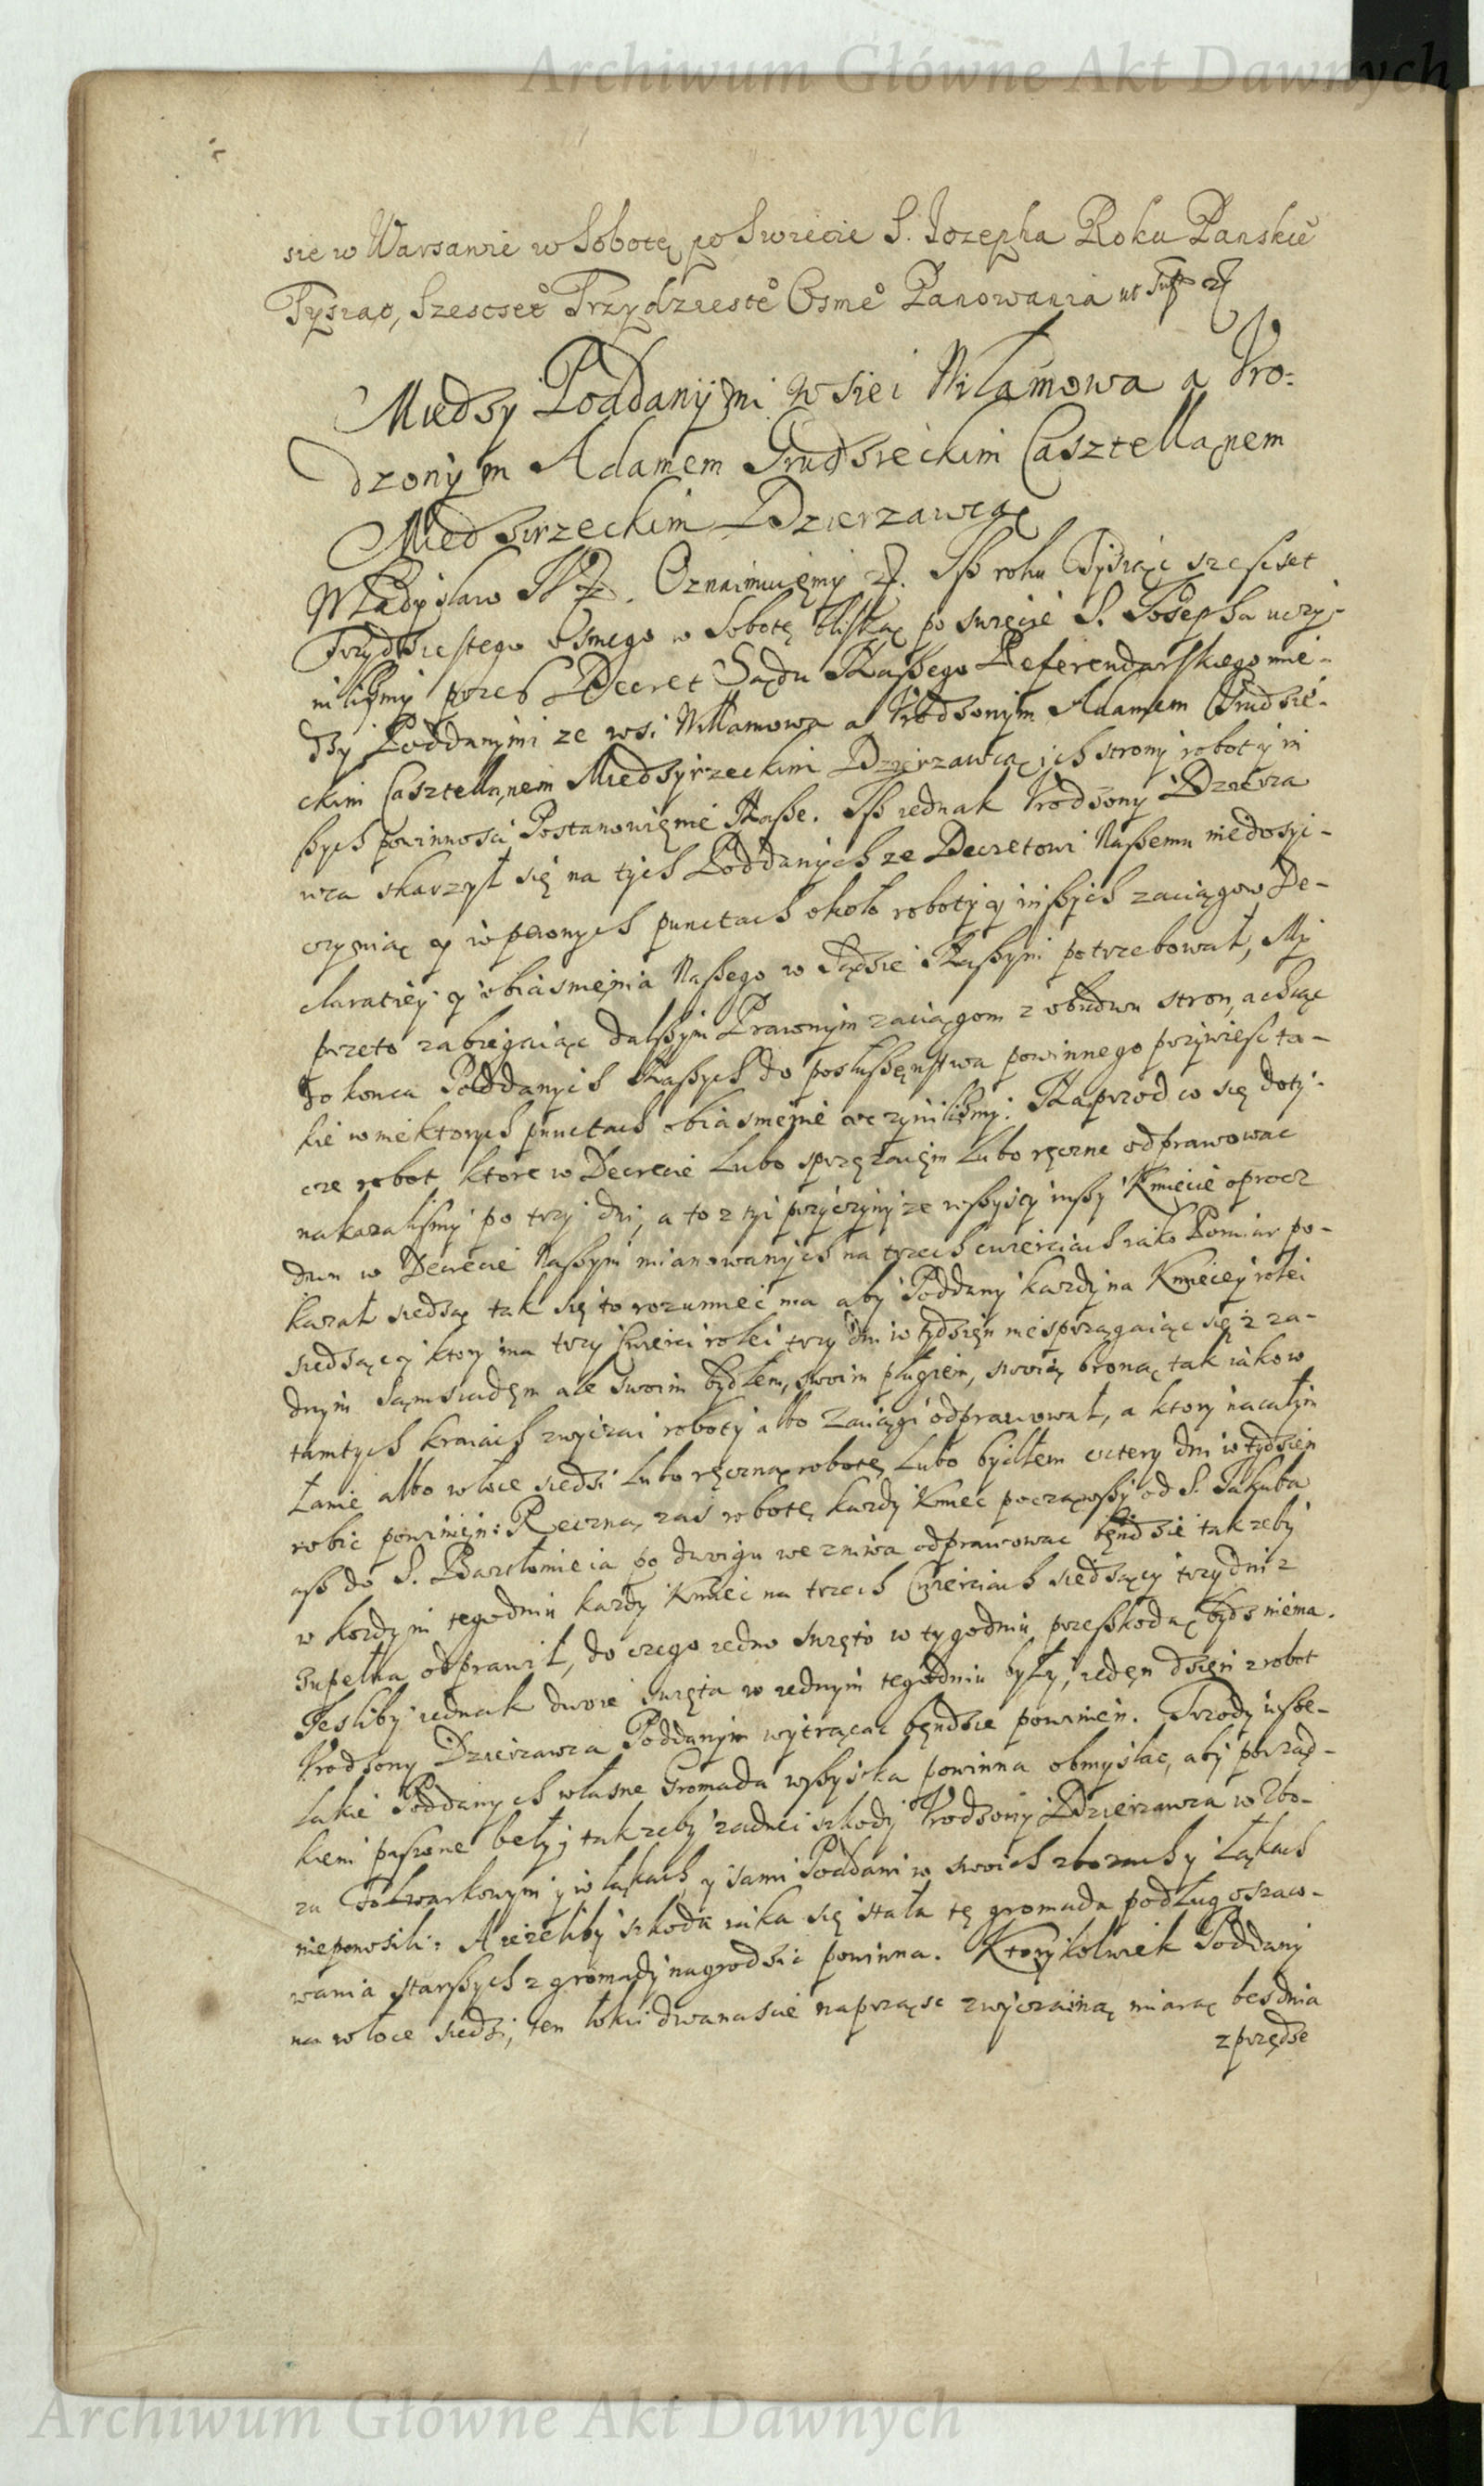 Archiwum Główne Akt Dawnych
sie w Warsawie w Sobotę po Swiecie S. Jozepha Roku Panskie͠
Tysiąc, Szescset͠ Trzydzieste͠ Osme͠ Panowania ut supra
Miedsy Poddanÿmi wsiei Wilamowa a Vro-
dzonÿm Adamem Grudsieckim Casztellanem
Miedsirzeckim Dzierzawcą
Władysław IV. Oznaimuięmÿ. Iß roku Tÿsiąc szescset
Trzÿdsiestego Osmego w Sobotę bliską po swięcie S. Josepha uczÿ-
niliſmÿ przes Decret Sądu Naßego Referendarskiego mie-
dsÿ Poddanÿmi ze wsi Willamowa a Vrodsonÿm Adamem Grudsie-
ckim Casztellanem Miedsÿrzeckim Dzierzawcą ich stronÿ robotÿ in
ßÿch powinnosci Postanowięnie Naße. Iß iednak Vrodsonÿ Dzierza
wca skarzÿł się na tÿch Poddanÿch ze Decretowi Naßemu niedosÿc-
czÿniąc ÿ w pewnÿch punctach około robotÿ ÿ inßÿch zaciągow De-
claratiÿ ÿ obiasnięnia Naßego w Sądsie Naßÿm potrzebował, Mÿ
przeto zabiegaiąc dalßÿm Prawnÿm zaciągom z obudwu stron, a chcąc
do konca Poddanÿch Naßÿch do posłußęnstwa powinnego przÿwiesc ta-
kie w niektorÿch punctach obiasnienie uczÿniliſmÿ: Naprzod co się dotÿ-
cze robot, ktore w Decrecie Lubo sprzęzaięm Lubo ręczne odprawowac
nakazaliſmÿ po trzÿ dni, a to z tÿi przÿczÿnÿ ze wßÿscÿ inßÿ Kmiecie oprocz
dwu w Decrecie Naßÿm mianowanÿch na trzech cwierciach iako Pomiar po-
kazał siedsą, tak się to rozumiec ma abÿ Poddanÿ kazdÿ na Kmiecey roli
siedsącÿ ktory ma trzÿ cwierci roli, trzÿ dni w tÿdsięn niesprzągaiąc się z za-
dnÿm Sąmsiadęm ale swoim bÿdłem, swoim pługiem, swoią broną, tak iako w
tamtÿch kraiach zwÿczai robotÿ albo Zaciągi odprawował, a ktorÿ na całÿm
Łanie albo włoce siedsi Lubo ręczną robotę, Lubo bÿdłem cztery dni w tÿdsięn
robic powinięn: Ręczną zas robotę kazdÿ Kmiec począwßÿ od S. Jakuba
aß do S. Barthłomieia po dwoigu we zniwa odprawowac będsie tak zebÿ
w kozdÿm tegodniu kazdÿ Kmiec na trzech cwierciach siedsącÿ trzÿ dni z
zupełna odprawił, do czego iedno swięto w tygodniu przeßkodą bÿds niema.
Jeslibÿ iednak dwoie swięta w iednÿm tegodniu bÿłÿ, iedęn dsięń z robot
Vrodsony Dzierzawca Poddanÿm wÿtrącac będsie powinien. Trzodÿ wße-
lakie Poddanÿch własne Gromada wßÿstka powinna obmÿslac, abÿ porząd-
kiem pasione bełÿ, tak zebÿ zadnei szkodÿ Vrodsonÿ Dzierzawca w Zbo-
zu Folwarkowÿm ÿ w łąkach, ÿ sami Poddani w swoich zbozach ÿ Łąkach
nieponosili: A iezelibÿ szkoda iaka się stała tę gromada podług oszaw-
wania starßÿch z gromadÿ nagrodsic powinna. Ktorÿkolwiek Poddanÿ
na włoce siedsi, ten łokci dwanascie naprząsc zwÿczainą miarą bes dnia
z przędse
Archiwum Główne Akt Dawnych